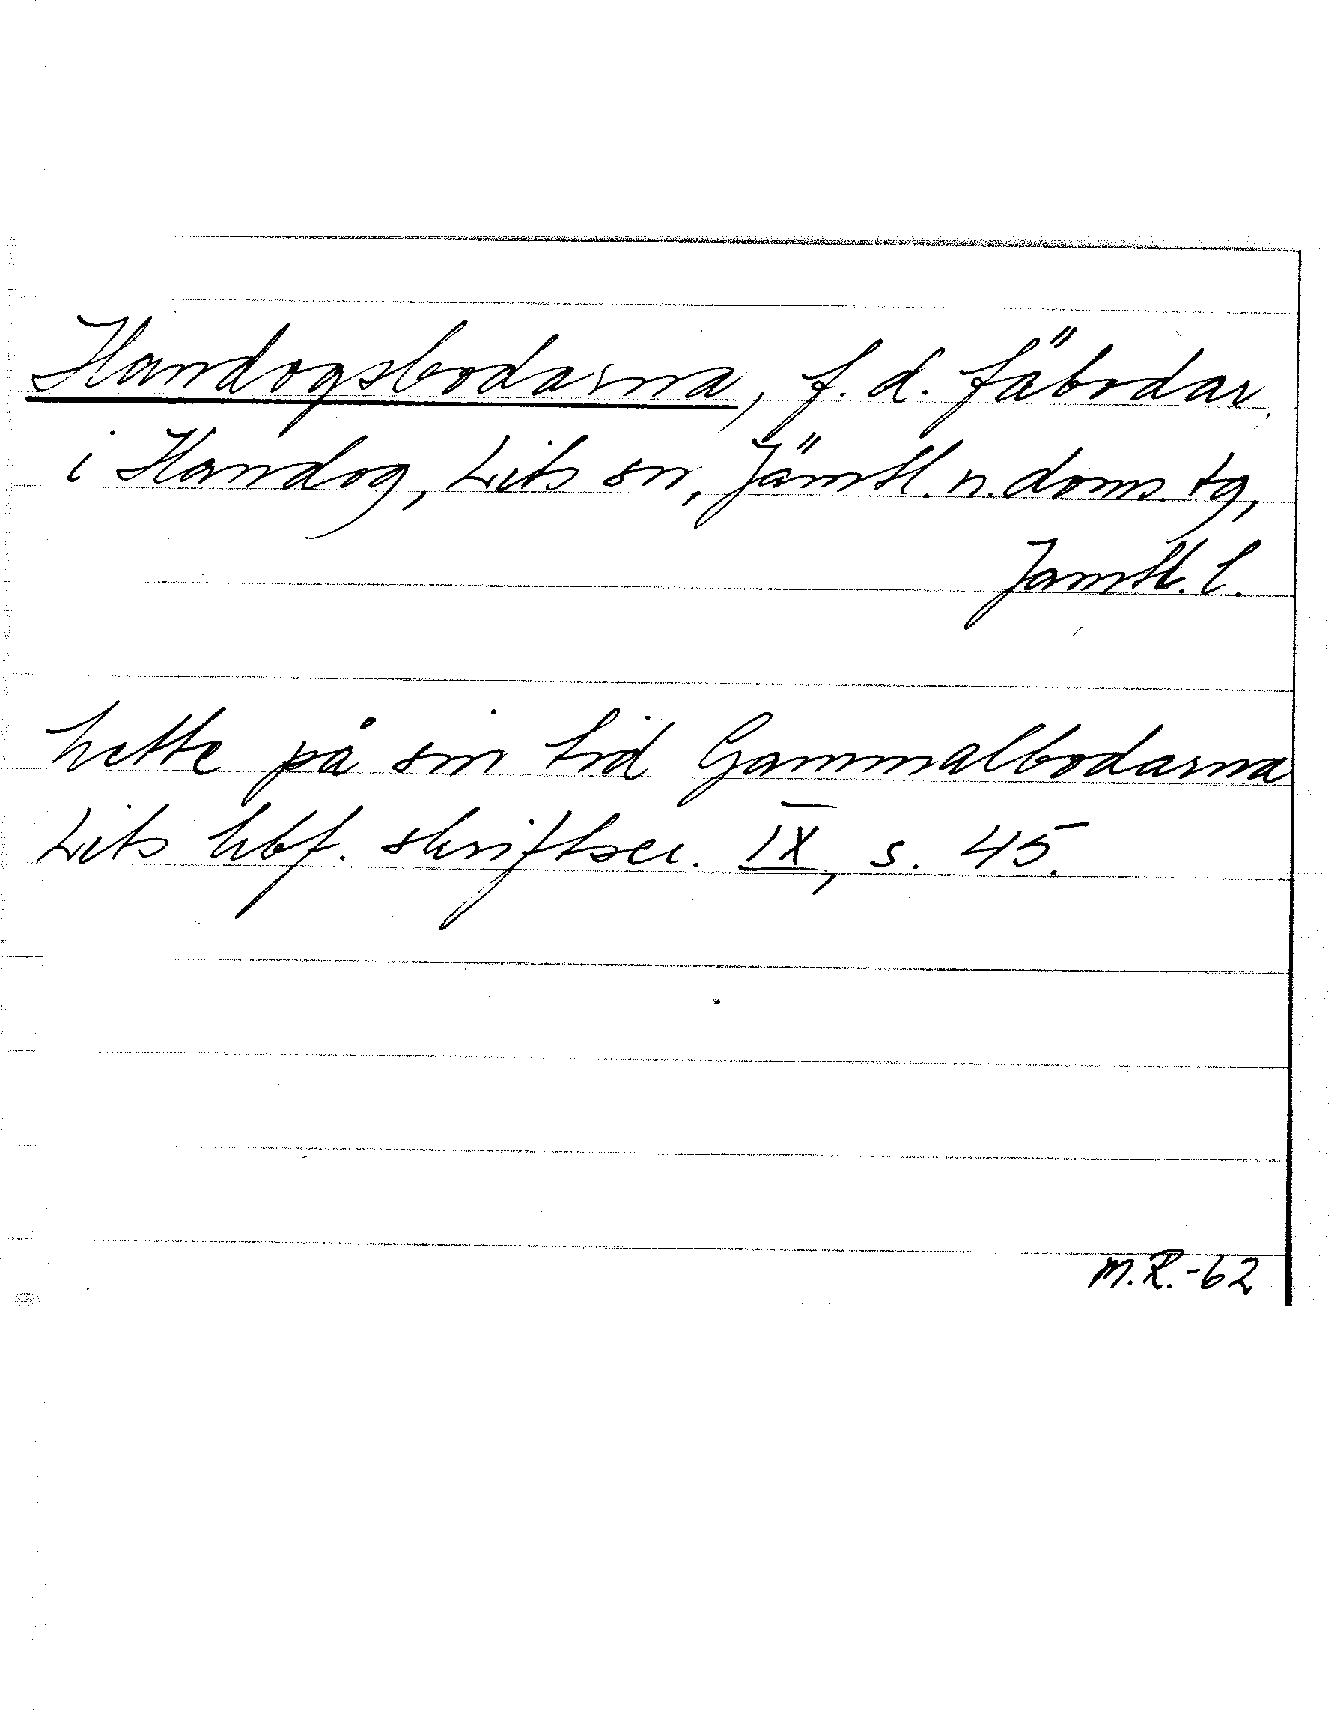 Handogsbodarna, f. d. fäbodar
i Handog, Lits sn, Jämtl. n. doms. tg,
Jämtl. l.
hette på sin tid Gammalbodarna
Lits hbf. skriftser. IX, s. 45.
M.R.-62